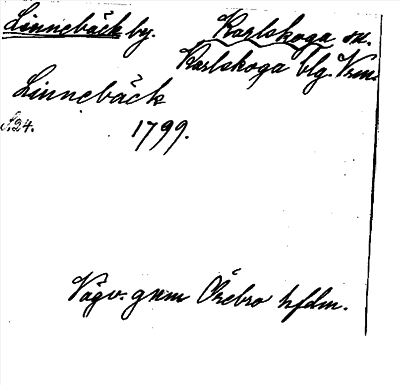 Linnebäck by. Karlskoga sn.
Karlskoga blg. Vrm.
Linnebäck
s. 24. 1799.
Vägv. gnm Örebro hfdm.